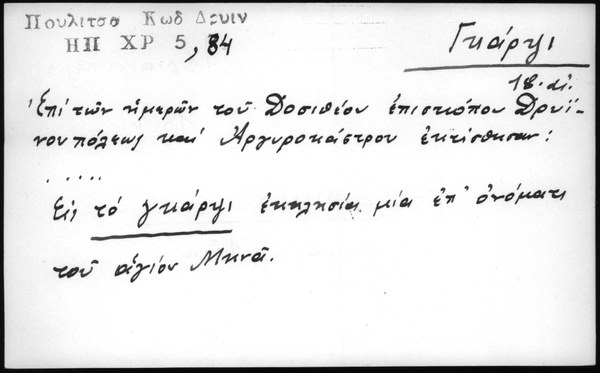 Πουλιτσα Κωδ Δρυιν
ΗΠ ΧΡ 5, 84
Γκάρψι
18. αἰ.
Ἐπί τῶν ἡμερῶν τοῦ Δοσιθέου ἐπισκόπου Δρυϊ-
νουπόλεως καί Ἀργυροκάστρου ἐκτίσθησαν:
.....
Εἰς τό γκάρψι ἐκκλησία μία ἐπ' ὀνόματι
τοῦ ἁγίου Μηνᾶ.